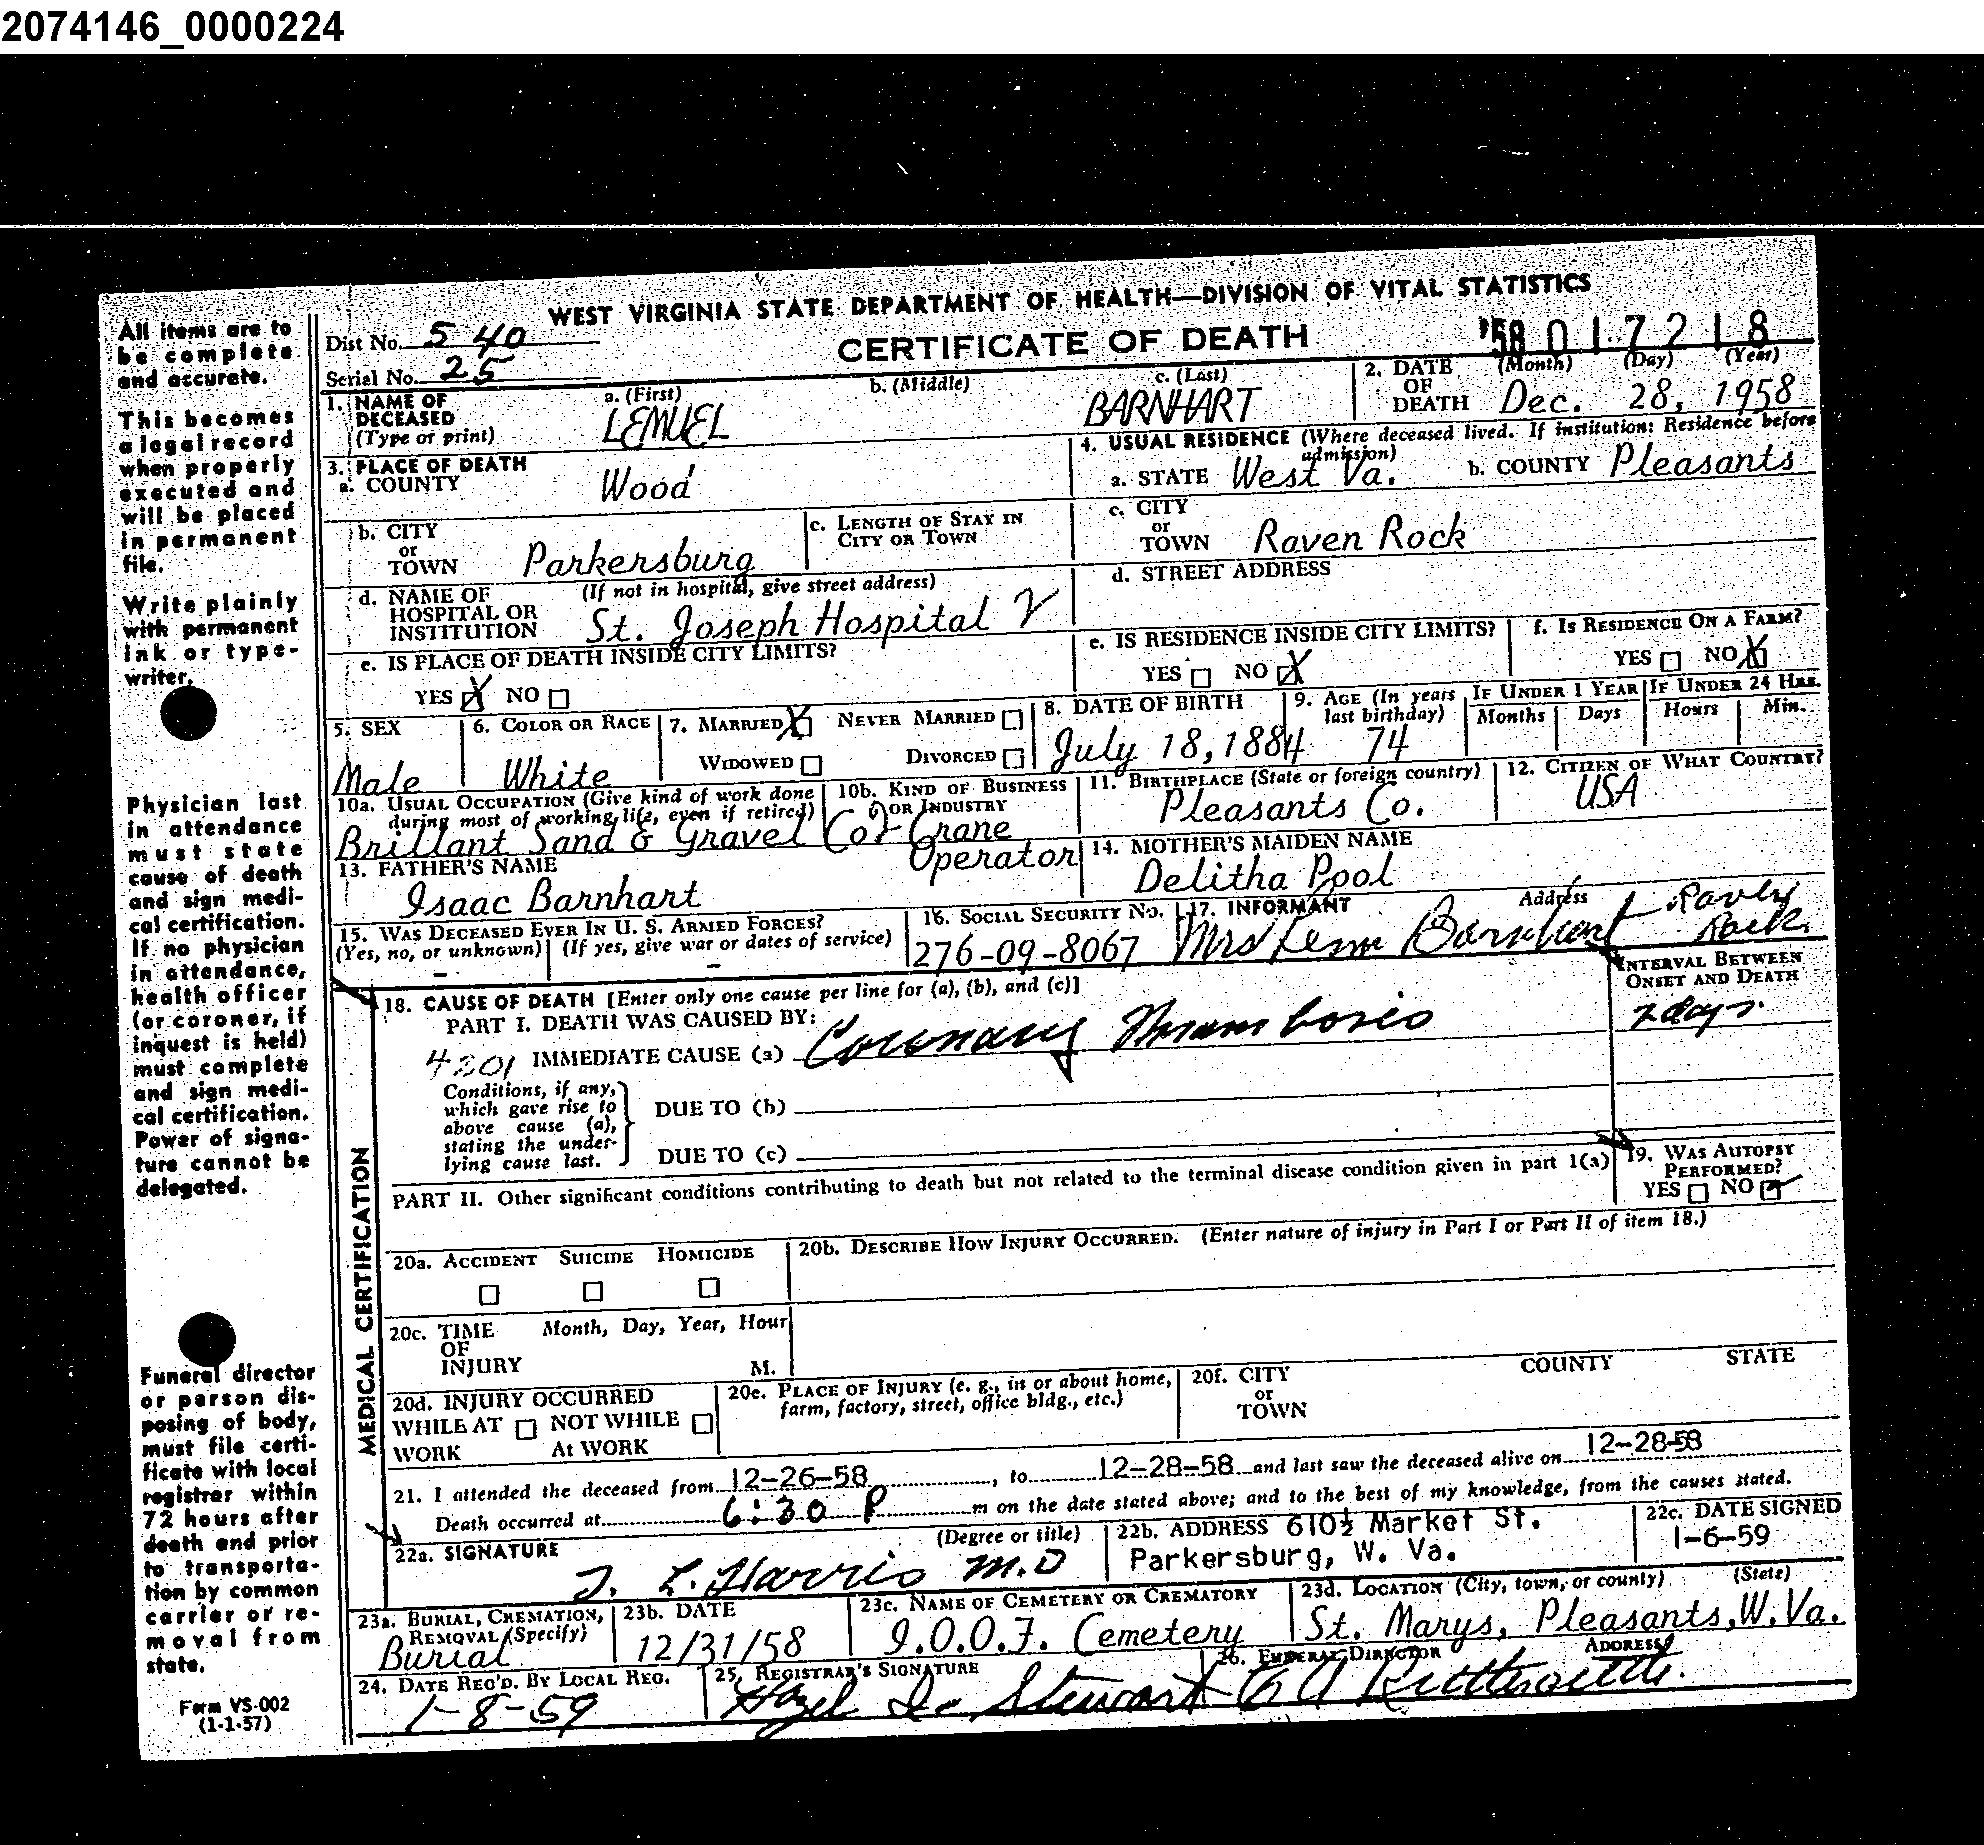 2074146_0000224
WEST VIRGINIA STATE DEPARTMENT OF HEALTH—DIVISION OF VITAL STATISTICS
CERTIFICATE OF DEATH
'58 017218
Dist No. 540
Serial No. 25
1. NAME OF DECEASED (Type or print)
a. (First) LEMUEL
b. (Middle)
c. (Last) BARNHART
2. DATE OF DEATH (Month) (Day) (Year) Dec. 28, 1958
3. PLACE OF DEATH
a. COUNTY Wood
4. USUAL RESIDENCE (Where deceased lived. If institution: Residence before admission)
a. STATE West Va. b. COUNTY Pleasants
b. CITY or TOWN Parkersburg
c. LENGTH OF STAY IN CITY OR TOWN
c. CITY or TOWN Raven Rock
d. NAME OF HOSPITAL OR INSTITUTION (If not in hospital, give street address) St. Joseph Hospital
d. STREET ADDRESS
e. IS PLACE OF DEATH INSIDE CITY LIMITS?
YES X NO
e. IS RESIDENCE INSIDE CITY LIMITS?
YES NO X
f. IS RESIDENCE ON A FARM?
YES NO X
5. SEX Male
6. COLOR OR RACE White
7. MARRIED X NEVER MARRIED
WIDOWED DIVORCED
8. DATE OF BIRTH July 18, 1884
9. AGE (In years last birthday) 74
IF UNDER 1 YEAR Months Days
IF UNDER 24 HRS. Hours Min.
10a. USUAL OCCUPATION (Give kind of work done during most of working life, even if retired)
10b. KIND OF BUSINESS OR INDUSTRY
Brillant Sand & Gravel Co. Crane Operator
11. BIRTHPLACE (State or foreign country) Pleasants Co.
12. CITIZEN OF WHAT COUNTRY? USA
13. FATHER'S NAME Isaac Barnhart
14. MOTHER'S MAIDEN NAME Delitha Pool
15. WAS DECEASED EVER IN U. S. ARMED FORCES?
(Yes, no, or unknown) (If yes, give war or dates of service)
- -
16. SOCIAL SECURITY NO. 276-09-8067
17. INFORMANT Address
Mrs Barnhart Rock
18. CAUSE OF DEATH [Enter only one cause per line for (a), (b), and (c)]
INTERVAL BETWEEN ONSET AND DEATH
PART I. DEATH WAS CAUSED BY:
4201 IMMEDIATE CAUSE (a) Coronary Thrombosis 2 days.
Conditions, if any, which gave rise to above cause (a), stating the underlying cause last.
DUE TO (b)
DUE TO (c)
PART II. Other significant conditions contributing to death but not related to the terminal disease condition given in part 1(a)
19. WAS AUTOPSY PERFORMED?
YES NO ✓
20a. ACCIDENT SUICIDE HOMICIDE
20b. DESCRIBE HOW INJURY OCCURRED. (Enter nature of injury in Part I or Part II of item 18.)
20c. TIME OF INJURY Month, Day, Year, Hour
M.
20d. INJURY OCCURRED
WHILE AT WORK NOT WHILE At WORK
20e. PLACE OF INJURY (e. g., in or about home, farm, factory, street, office bldg., etc.)
20f. CITY or TOWN COUNTY STATE
21. I attended the deceased from 12-26-58, to 12-28-58 and last saw the deceased alive on 12-28-58
Death occurred at 6:30 P m on the date stated above; and to the best of my knowledge, from the causes stated.
22a. SIGNATURE (Degree or title)
L. Harris M.D
22b. ADDRESS 610½ Market St.
Parkersburg, W. Va.
22c. DATE SIGNED
1-6-59
23a. BURIAL, CREMATION, REMOVAL (Specify) Burial
23b. DATE 12/31/58
23c. NAME OF CEMETERY OR CREMATORY I.O.O.F. Cemetery
23d. LOCATION (City, town, or county) (State)
St. Marys, Pleasants, W.Va.
24. DATE REC'D. BY LOCAL REG. 1-8-59
25. REGISTRAR'S SIGNATURE Hazel Stewart
26. FUNERAL DIRECTOR ADDRESS
MEDICAL CERTIFICATION
All items are to
be complete
and accurate.
This becomes
a legal record
when properly
executed and
will be placed
in permanent
file.
Write plainly
with permanent
ink or type-
writer.
Physician last
in attendance
must state
cause of death
and sign medi-
cal certification.
If no physician
in attendance,
health officer
(or coroner, if
inquest is held)
must complete
and sign medi-
cal certification.
Power of signa-
ture cannot be
delegated.
Funeral director
or person dis-
posing of body,
must file certi-
ficate with local
registrar within
72 hours after
death and prior
to transporta-
tion by common
carrier or re-
moval from
state.
Form VS-002
(1-1-57)